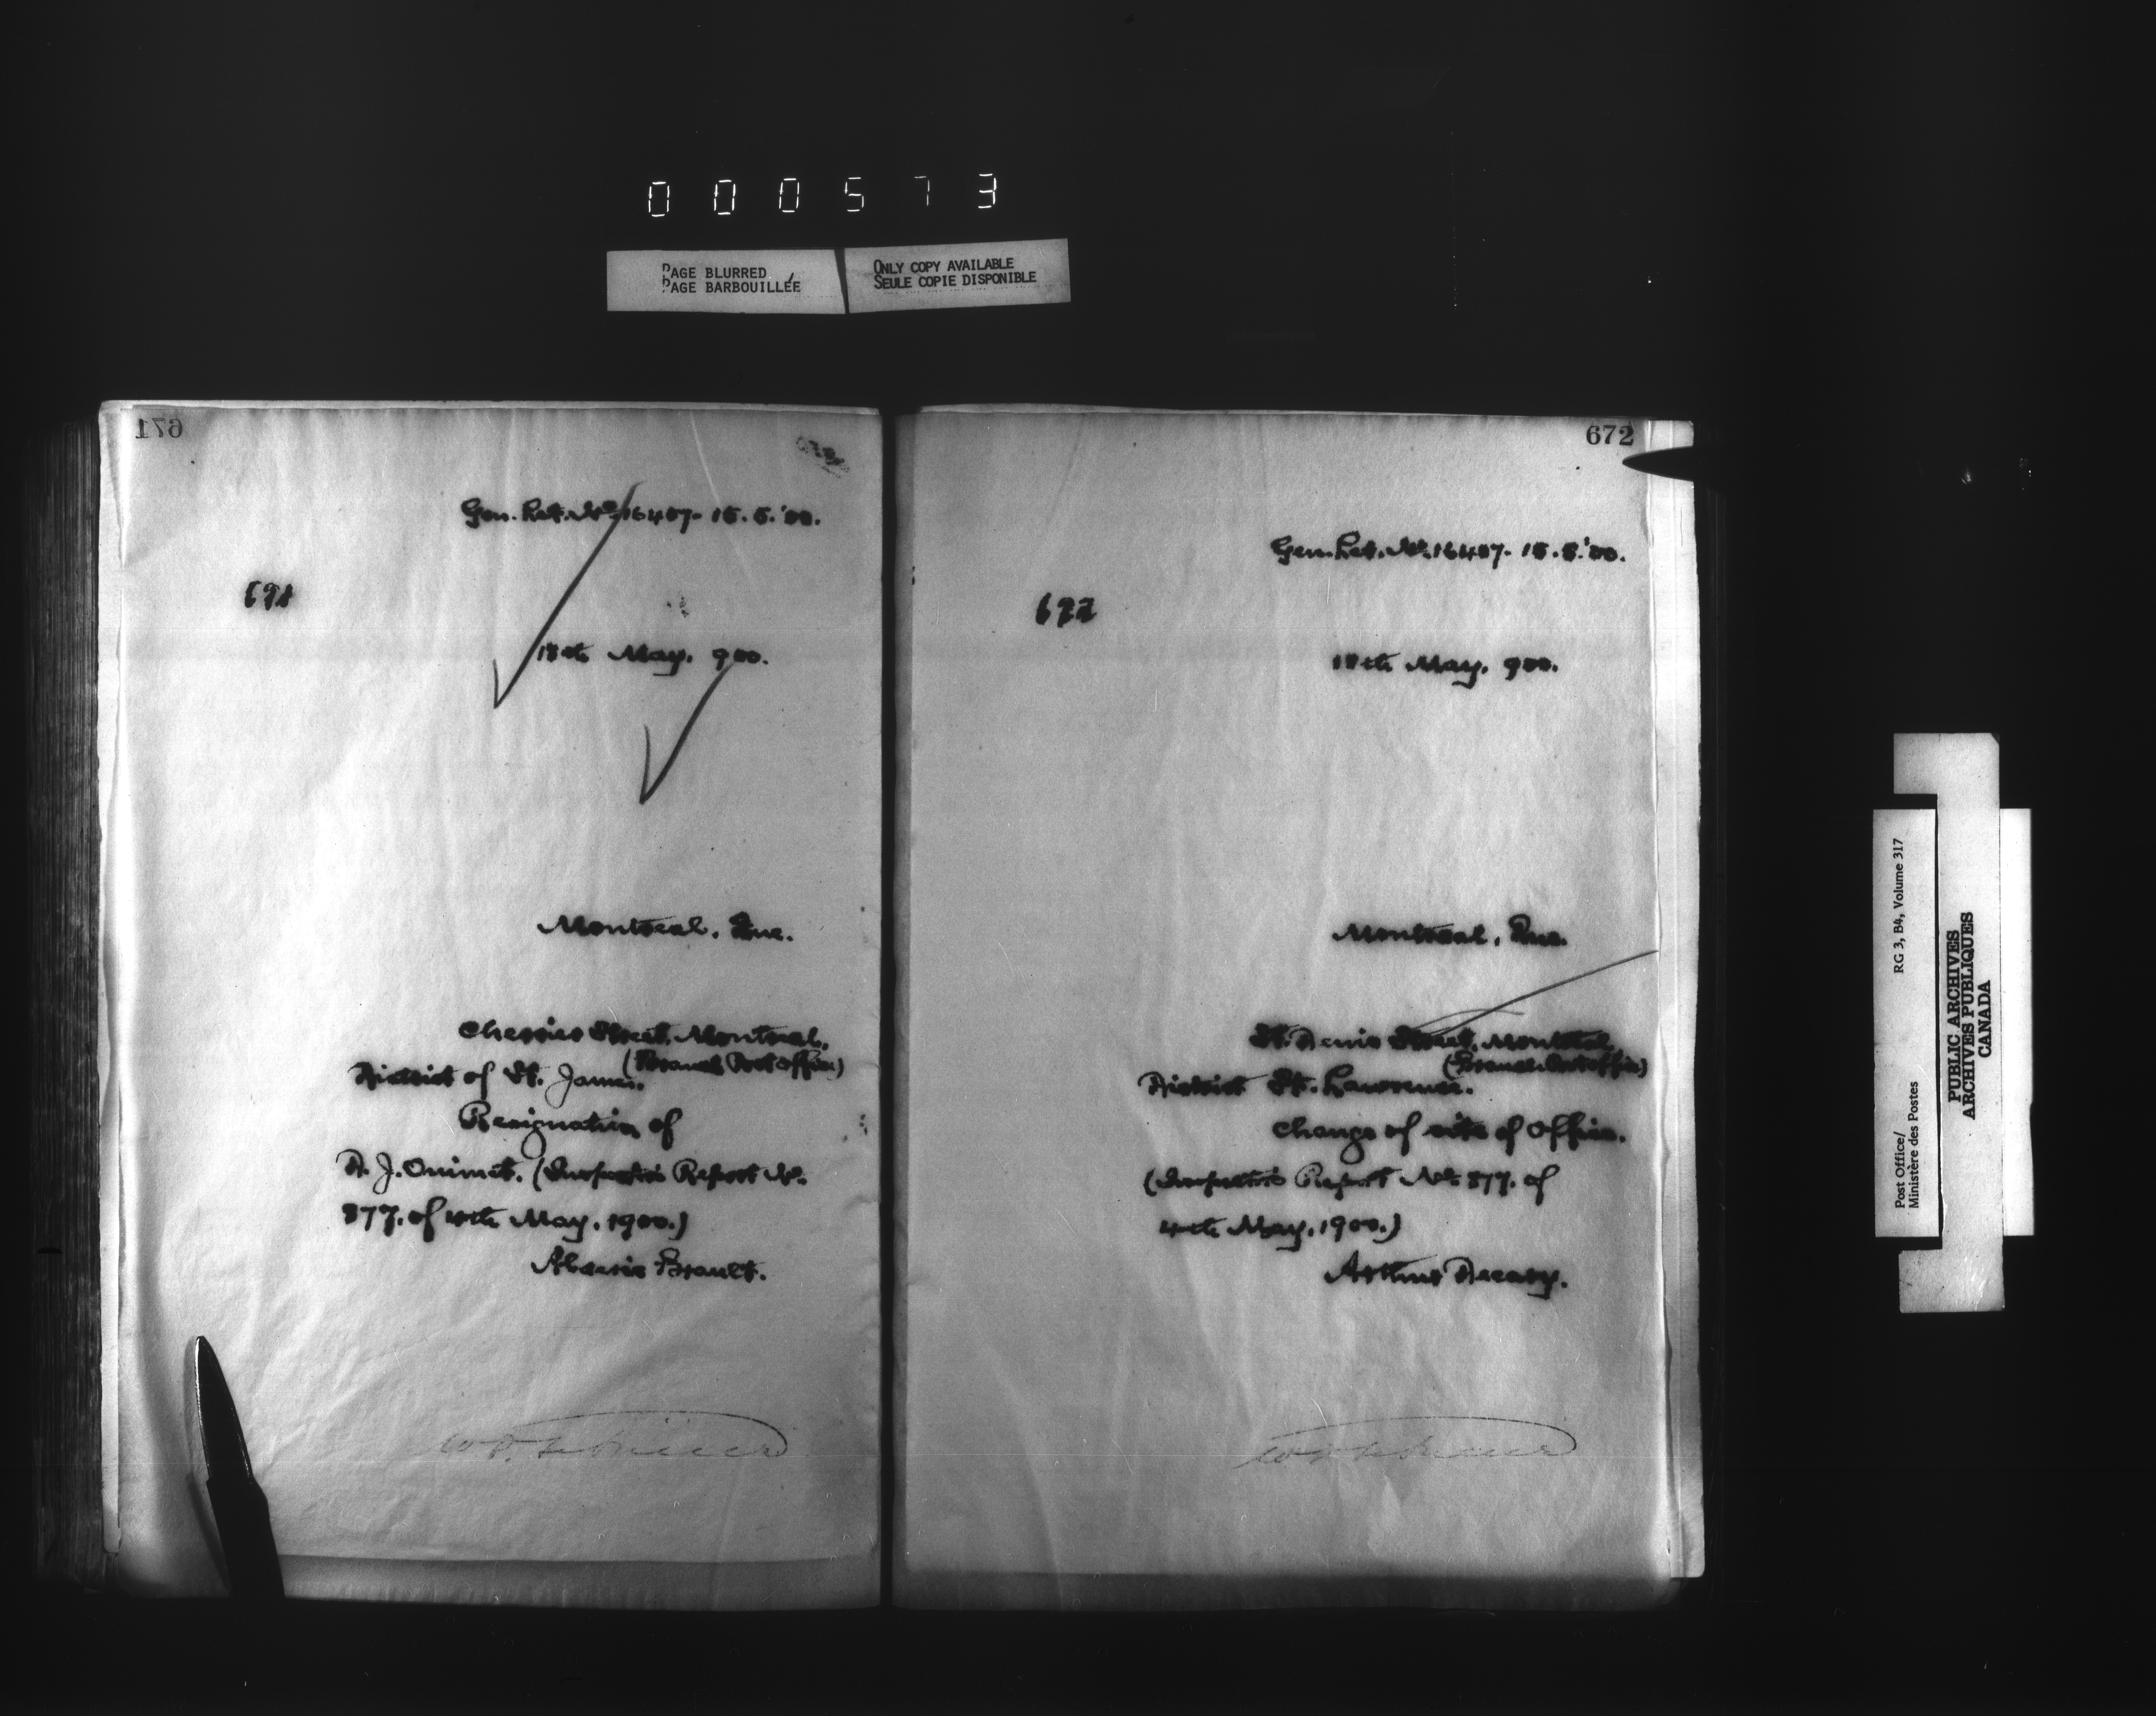 000573
PAGE BLURRED
PAGE BARBOUILLÉE
ONLY COPY AVAILABLE
SEULE COPIE DISPONIBLE
671
Gen. Let. No. 16407- 15.5.'00.
671
18th May. 900.
Montreal, Que.
Cherrier Street, Montreal.
(Branch Post Office)
District of St. James.
Resignation of
A. J. Ouimet. (Inspector's Report No.
377. of 4th May, 1900.)
Brault.
672
Gen. Let. No. 16407- 15.5.'00.
672
18th May. 900.
Montreal, Que.
St. Denis Street, Montreal
(Branch Post Office)
District St. Lawrence.
Change of site of Office.
(Inspector's Report No. 377. of
4th May, 1900.)
Arthur Decary.
Post Office/
Ministère des Postes
RG 3, B4, Volume 317
PUBLIC ARCHIVES
ARCHIVES PUBLIQUES
CANADA